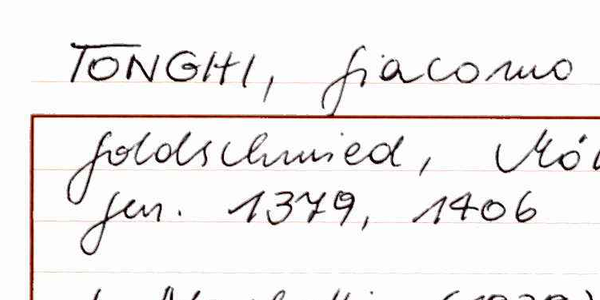 TONGHI, Giacomo
Goldschmied,
gen. 1379, 1406